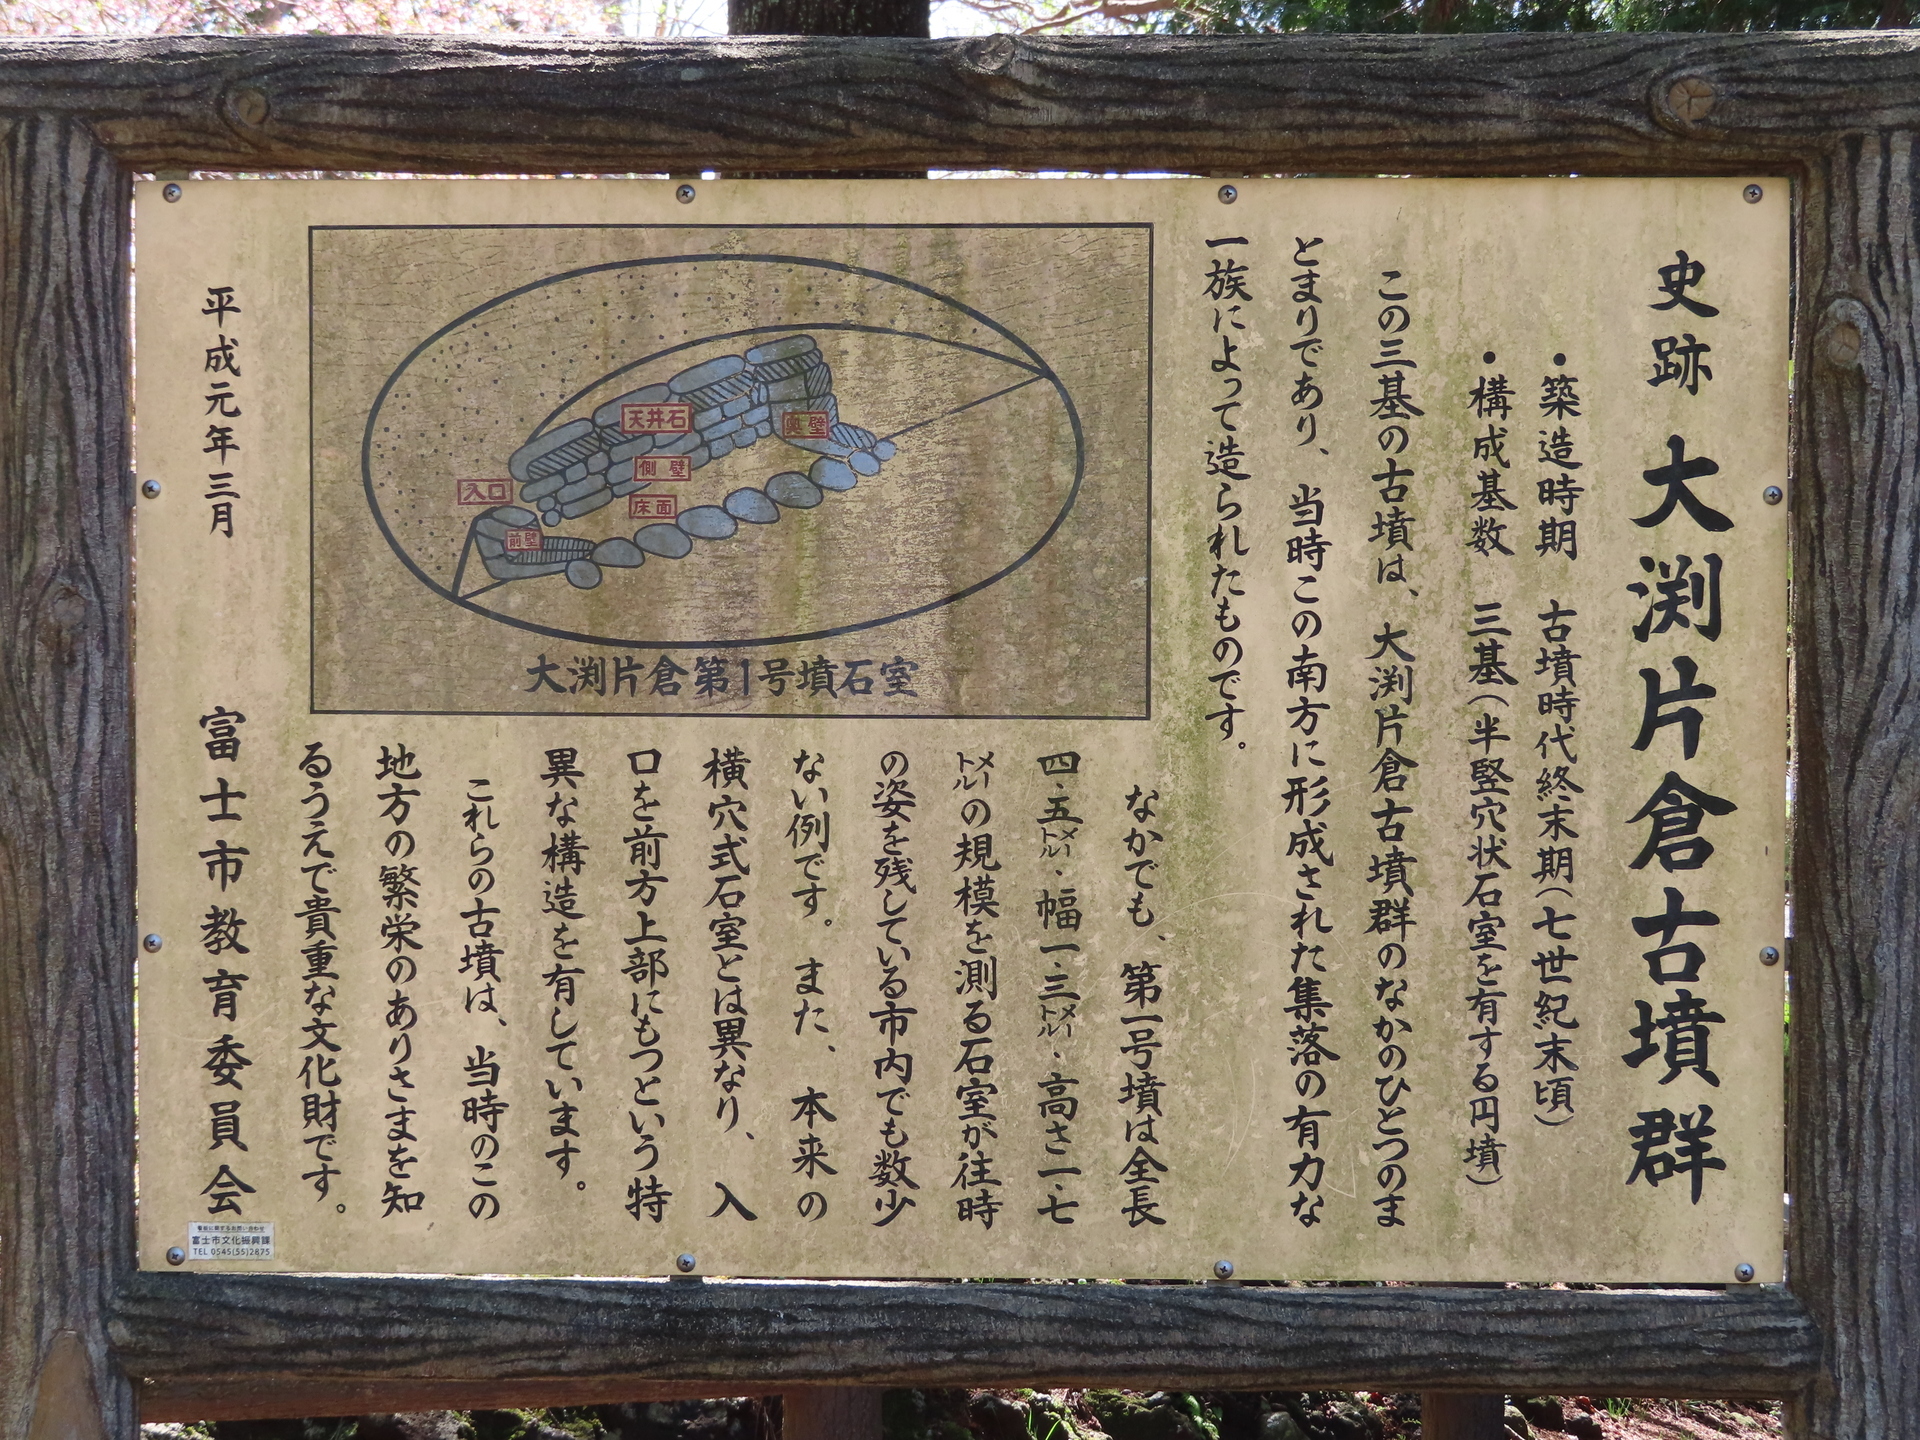 史跡 大渕片倉古墳群
・築造時期 古墳時代終末期(七世紀末頃)
・構成基数 三基(半竪穴状石室を有する円墳)
この三基の古墳は、大渕片倉古墳群のなかのひとつのま
とまりであり、当時この南方に形成された集落の有力な
一族によって造られたものです。
なかでも、第一号墳は全長
四・五メートル・幅一・三メートル・高さ一・七
メートルの規模を測る石室が往時
の姿を残している市内でも数少
ない例です。また、本来の
横穴式石室とは異なり、入
口を前方上部にもつという特
異な構造を有しています。
これらの古墳は、当時のこの
地方の繁栄のありさまを知
るうえで貴重な文化財です。
平成元年三月 富士市教育委員会
天井石
奥壁
側壁
入口
床面
前壁
大渕片倉第1号墳石室
富士市文化振興課
TEL 0545(55)2875